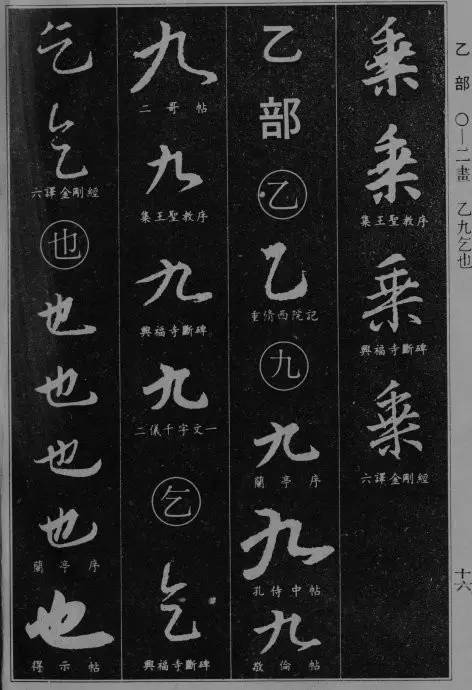 乙部 〇—二畫 乙九乞也
十六
乘
乘
集王聖教序
乘
興福寺斷碑
乘
六譯金剛經
乙部
乙
乙
重脩西院記
九
九
蘭亭序
九
孔侍中帖
九
敬倫帖
九
二哥帖
九
集王聖教序
九
興福寺斷碑
九
二儀千字文一
乞
乞
興福寺斷碑
乞
乞
六譯金剛經
也
也
也
也
也
蘭亭序
也
得示帖